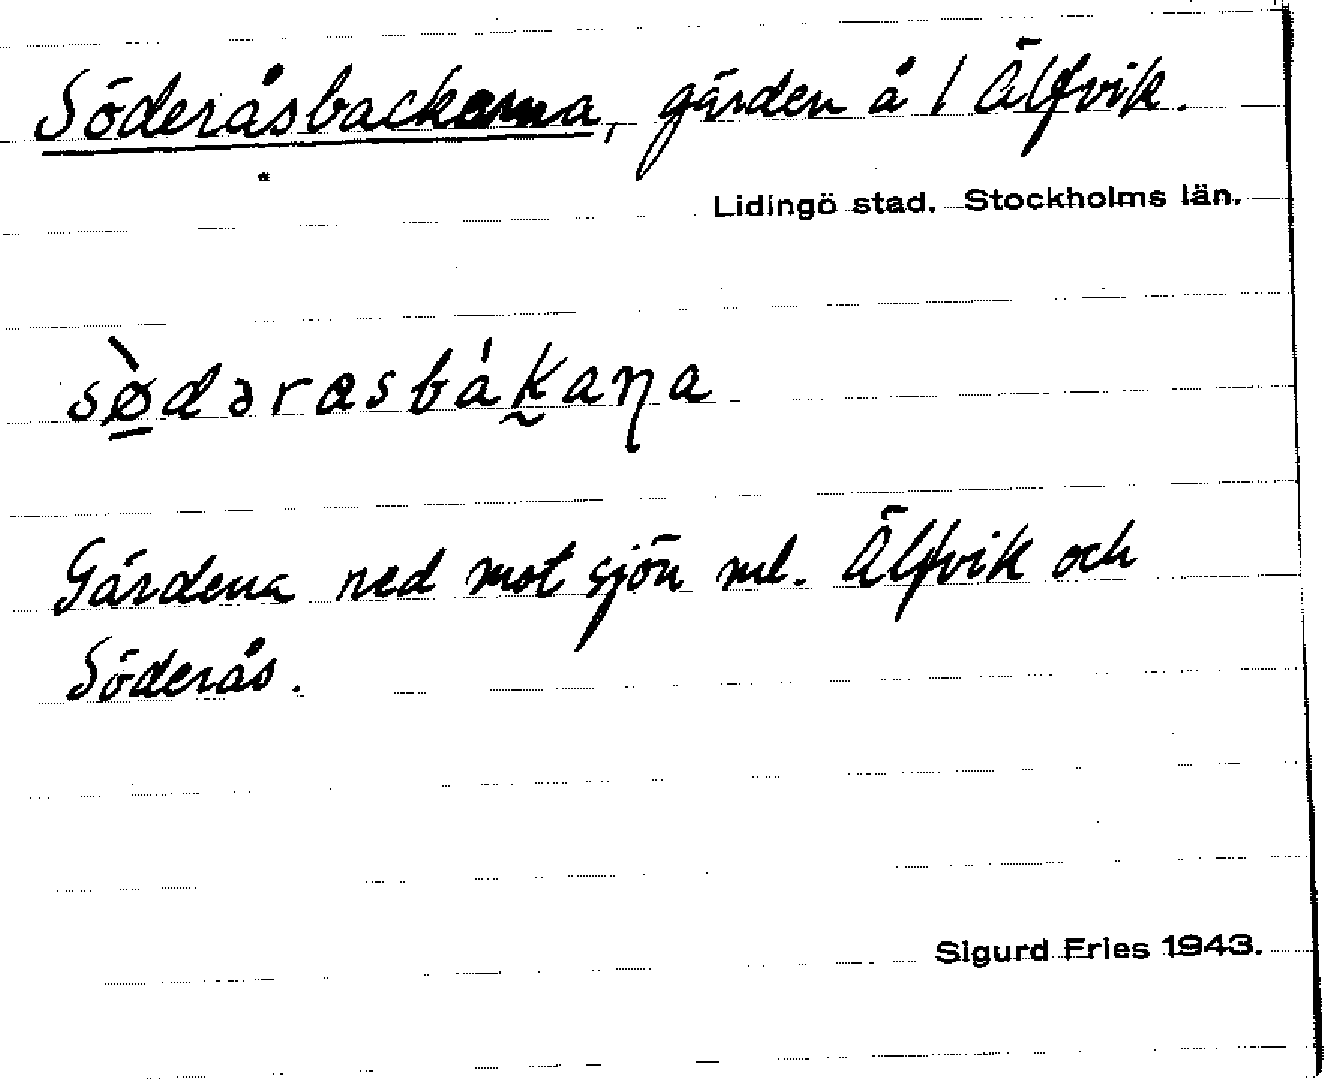 Söderåsbackarna, gärden å 1 Älfvik.
Lidingö stad. Stockholms län.
sø̀dərasbákaɳa
Gärdena ned mot sjön ml. Älfvik och
Söderås.
Sigurd Fries 1943.